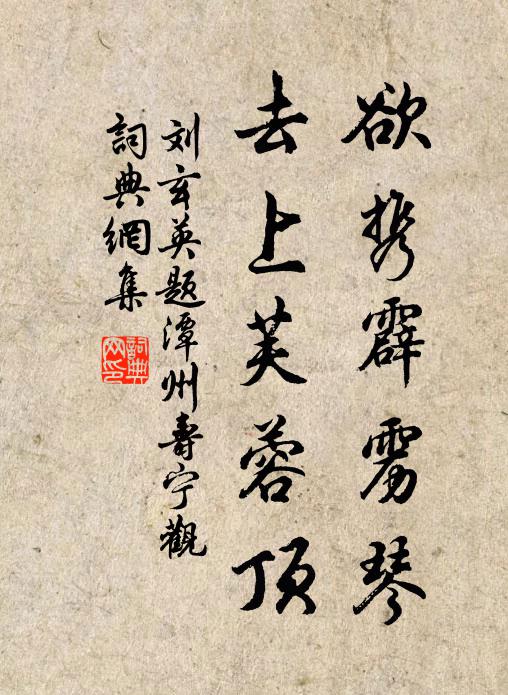 欲携霹雳琴
去上芙蓉顶
刘玄英题潭州寿宁觀
詞典網集
詞典網印